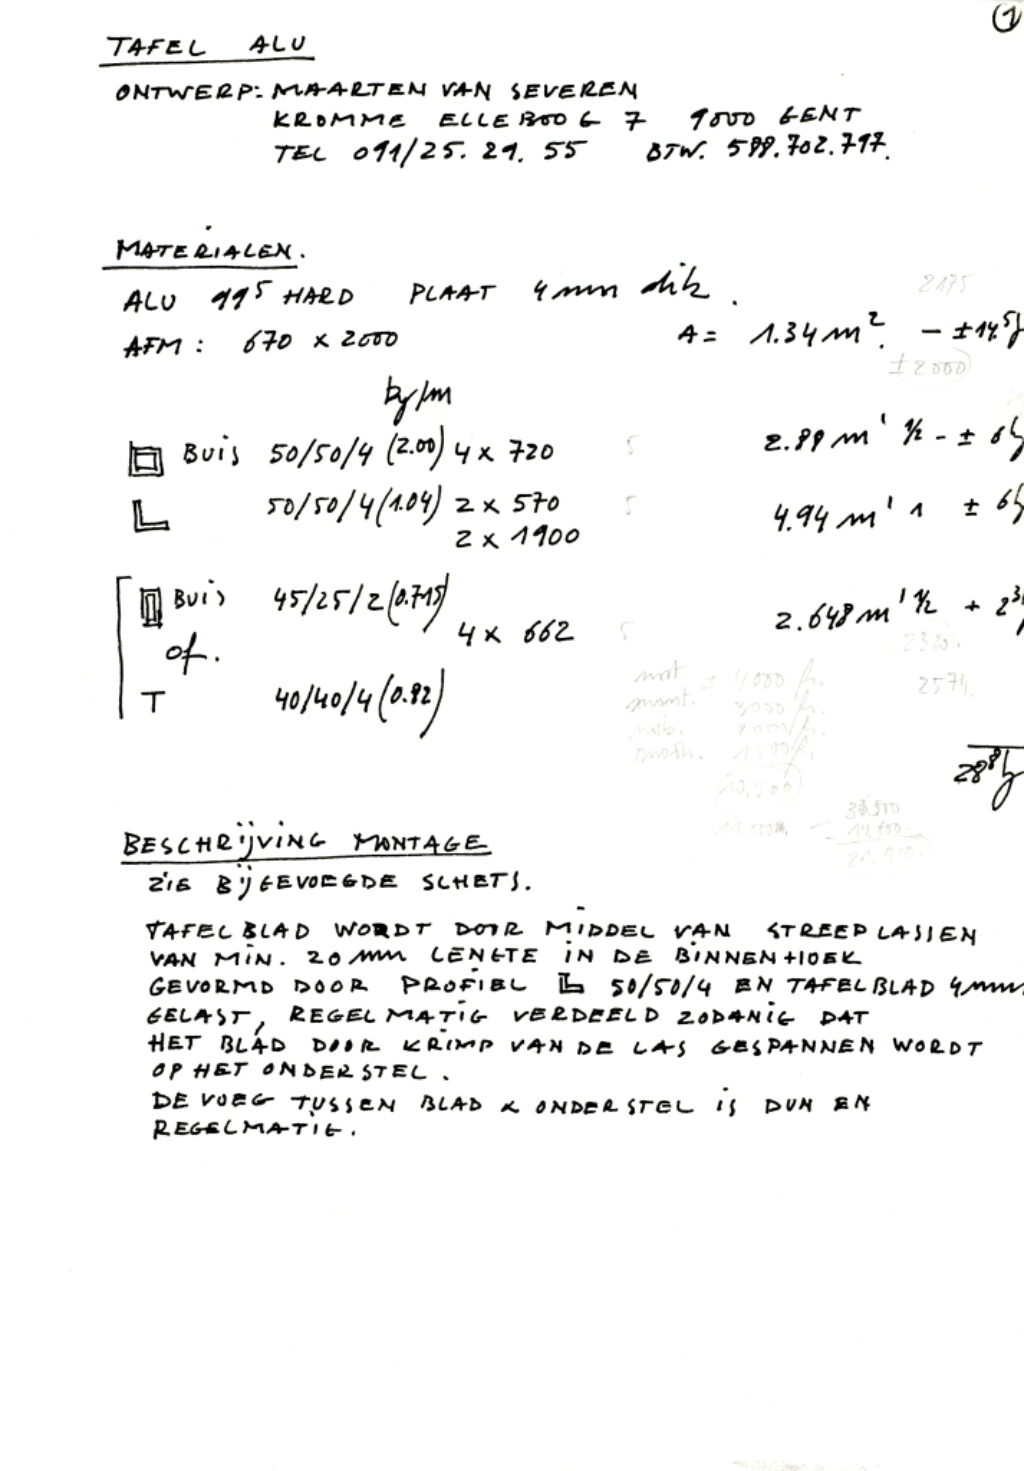 1
TAFEL ALU
ONTWERP: MAARTEN VAN SEVEREN
KROMME ELLEBOOG 7 9000 GENT
TEL 091/25.29.55 BTW. 599.702.797.
MATERIALEN.
2175
ALU 99⁵ HARD PLAAT 4mm dik.
AFM: 670 x 2000 A = 1.34 m². - ±14.5
±2000
kg/m
BUIS 50/50/4 (2.00) 4 x 720 5 2.88 m¹ ½ - ± 6
L 50/50/4 (1.04) 2 x 570 5 4.94 m¹ 1 ± 6
2 x 1900
BUIS 45/25/2 (0.715) 2.648 m¹ ½ + 2
4 x 662 5
of.
2320.
T 40/40/4 (0.82)
± 4000 fr. 2574.
mont. 3000 fr.
2000 fr.
28⁸
BESCHRIJVING MONTAGE
ZIE BIJGEVOEGDE SCHETS.
TAFELBLAD WORDT DOOR MIDDEL VAN STREEPLASSEN
VAN MIN. 20 mm LENGTE IN DE BINNENHOEK
GEVORMD DOOR PROFIEL L 50/50/4 EN TAFELBLAD 4mm
GELAST, REGELMATIG VERDEELD ZODANIG DAT
HET BLAD DOOR KRIMP VAN DE LAS GESPANNEN WORDT
OP HET ONDERSTEL.
DE VOEG TUSSEN BLAD & ONDERSTEL IS DUN EN
REGELMATIG.